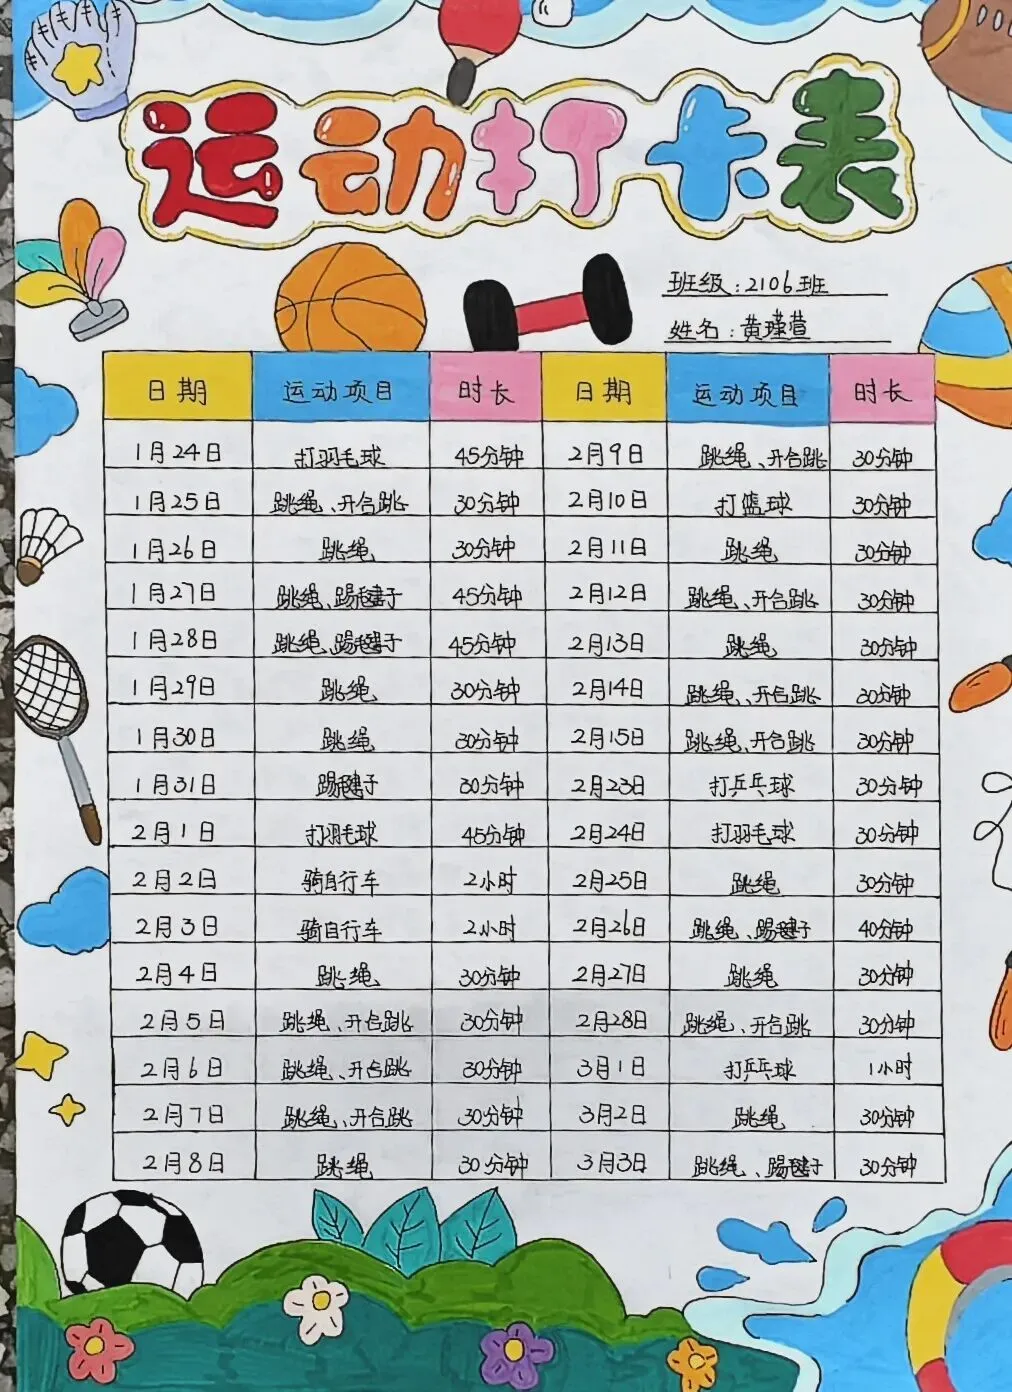 运动打卡表
班级:2106班
姓名:黄瑾萱
日期 运动项目 时长 日期 运动项目 时长
1月24日 打羽毛球 45分钟 2月9日 跳绳、开合跳 30分钟
1月25日 跳绳、开合跳 30分钟 2月10日 打篮球 30分钟
1月26日 跳绳 30分钟 2月11日 跳绳 30分钟
1月27日 跳绳、踢毽子 45分钟 2月12日 跳绳、开合跳 30分钟
1月28日 跳绳、踢毽子 45分钟 2月13日 跳绳 30分钟
1月29日 跳绳 30分钟 2月14日 跳绳、开合跳 30分钟
1月30日 跳绳 30分钟 2月15日 跳绳、开合跳 30分钟
1月31日 踢毽子 30分钟 2月23日 打乒乓球 30分钟
2月1日 打羽毛球 45分钟 2月24日 打羽毛球 30分钟
2月2日 骑自行车 2小时 2月25日 跳绳 30分钟
2月3日 骑自行车 2小时 2月26日 跳绳、踢毽子 40分钟
2月4日 跳绳 30分钟 2月27日 跳绳 30分钟
2月5日 跳绳、开合跳 30分钟 2月28日 跳绳、开合跳 30分钟
2月6日 跳绳、开合跳 30分钟 3月1日 打乒乓球 1小时
2月7日 跳绳、开合跳 30分钟 3月2日 跳绳 30分钟
2月8日 跳绳 30分钟 3月3日 跳绳、踢毽子 30分钟